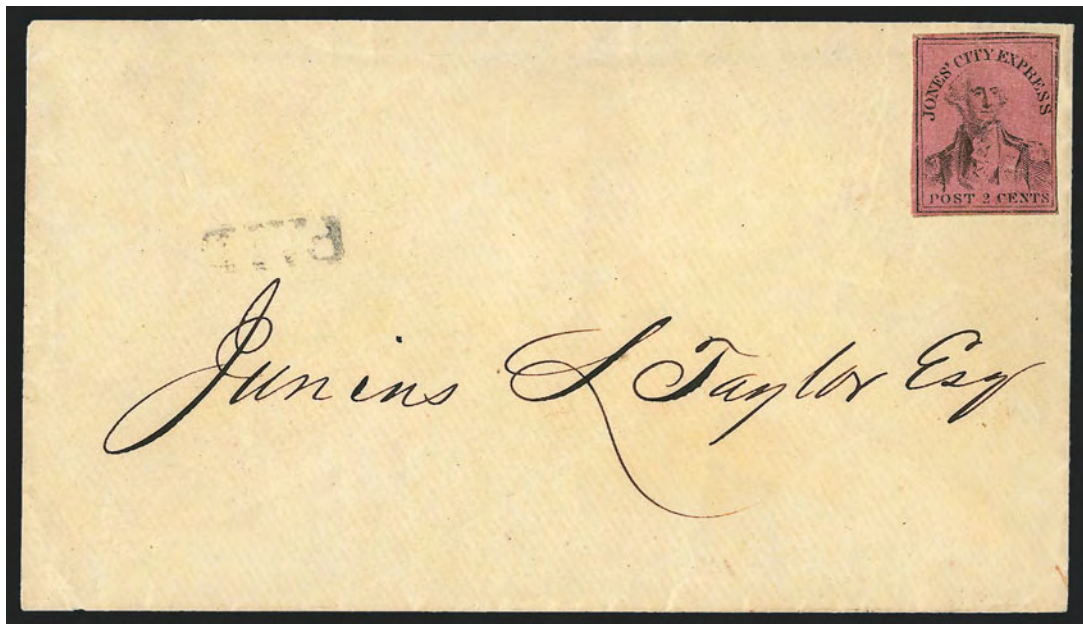 JONES' CITY EXPRESS
POST 2 CENTS
PAID
Junius L Taylor Esq